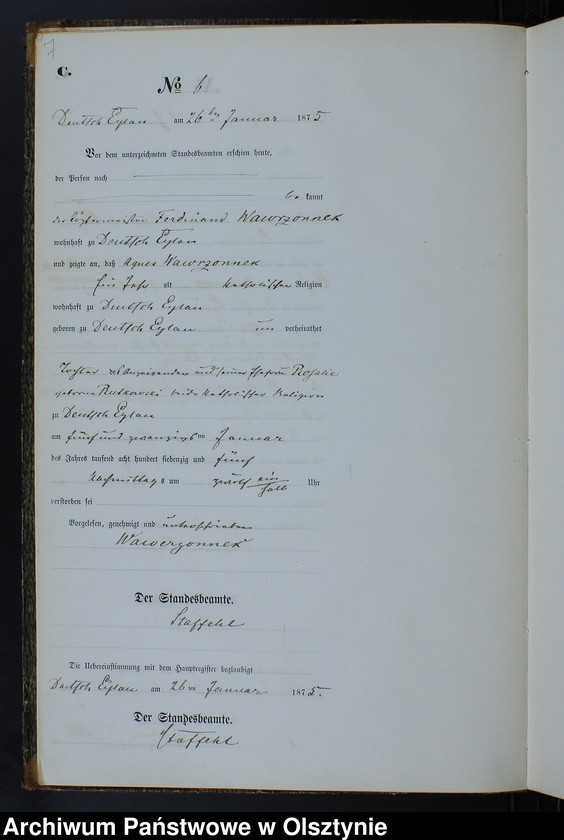 7
C.
No 6
Deutsch Eylau am 26ten Januar 1875
Vor dem unterzeichneten Standesbeamten erschien heute,
der Person nach
be kannt
der Töpfermeister Ferdinand Wawrzonnek
wohnhaft zu Deutsch Eylau
und zeigte an, daß Agnes Wawrzonnek
Ein Jahr alt katholischer Religion
wohnhaft zu Deutsch Eylau
geboren zu Deutsch Eylau un verheirathet
Tochter des Anzeigenden und seiner Ehefrau Rosalie
geborene Rutkowski beide katholischer Religion
zu Deutsch Eylau
am fünf und zwanzigsten Januar
des Jahres tausend acht hundert siebenzig und fünf
Nachmittags um zwölf ein halb Uhr
verstorben sei
Vorgelesen, genehmigt und unterschrieben
Wawerzonnek
Der Standesbeamte.
Staffehl
Die Uebereinstimmung mit dem Hauptregister beglaubigt
Deutsch Eylau am 26ten Januar 1875.
Der Standesbeamte.
Staffehl
Archiwum Państwowe w Olsztynie